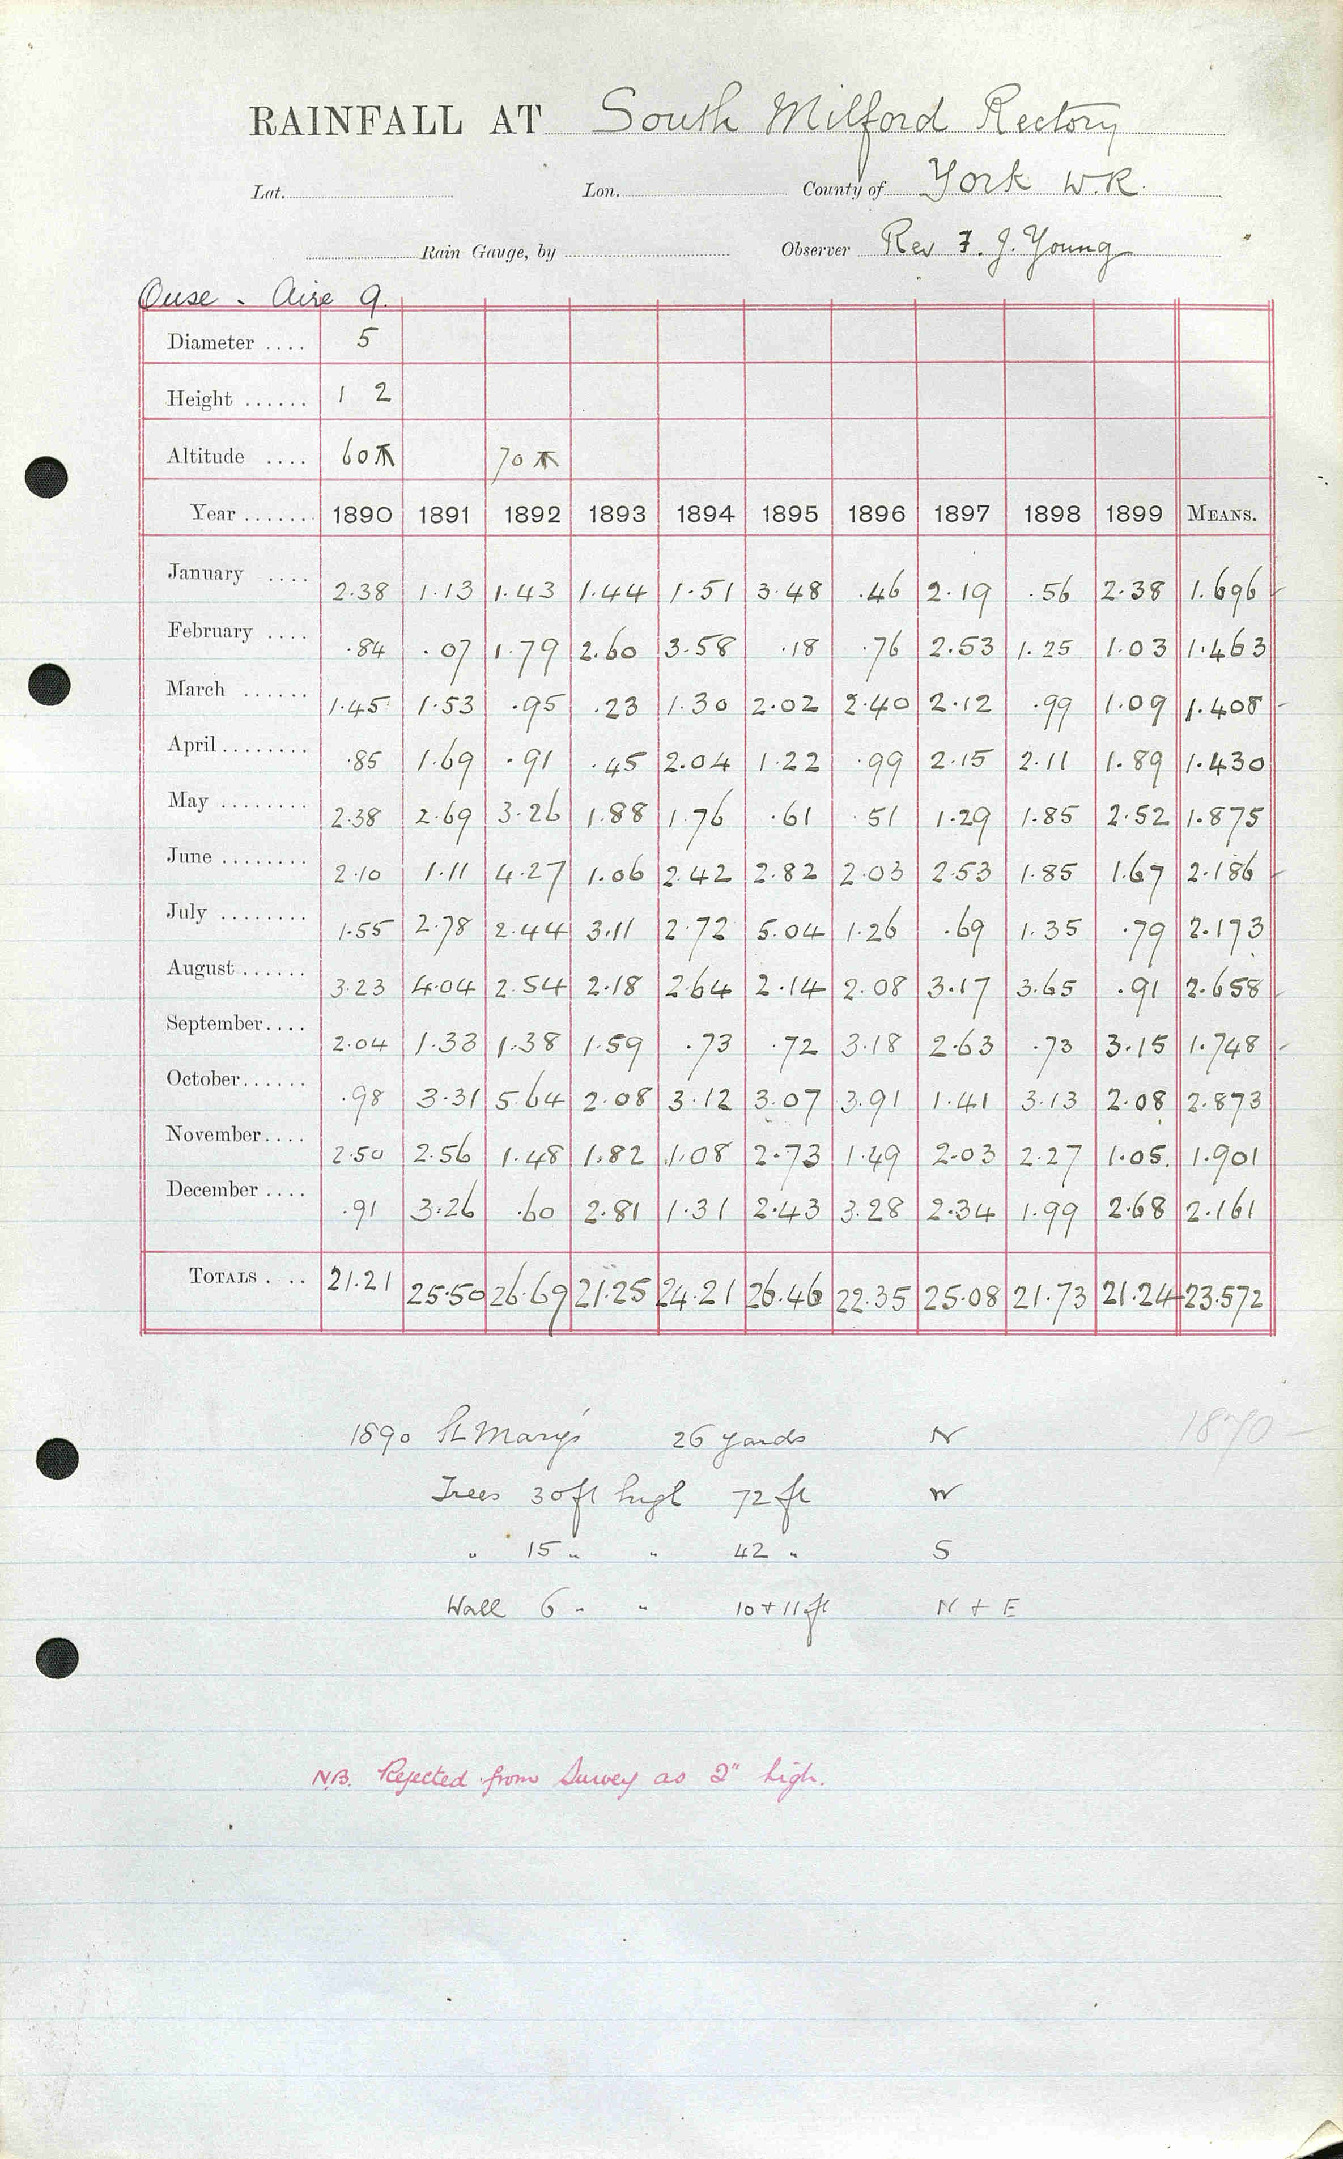 RAINFALL AT South Milford Rectory
Lat. Lon. County of York W.R.
Rain Gauge, by Observer Rev F. J. Young
Ouse - Aire 9.
Diameter .... 5
Height ...... 1 2
Altitude .... 60 70
Year ....... 1890 1891 1892 1893 1894 1895 1896 1897 1898 1899 MEANS.
January .... 2.38 1.13 1.43 1.44 1.51 3.48 .46 2.19 .56 2.38 1.696
February .... .84 .07 1.79 2.60 3.58 .18 .76 2.53 1.25 1.03 1.463
March ...... 1.45 1.53 .95 .23 1.30 2.02 2.40 2.12 .99 1.09 1.408
April ........ .85 1.69 .91 .45 2.04 1.22 .99 2.15 2.11 1.89 1.430
May ........ 2.38 2.69 3.26 1.88 1.76 .61 .51 1.29 1.85 2.52 1.875
June ........ 2.10 1.11 4.27 1.06 2.42 2.82 2.03 2.53 1.85 1.67 2.186
July ........ 1.55 2.78 2.44 3.11 2.72 5.04 1.26 .69 1.35 .79 2.173
August ...... 3.23 4.04 2.54 2.18 2.64 2.14 2.08 3.17 3.65 .91 2.658
September .... 2.04 1.33 1.38 1.59 .73 .72 3.18 2.63 .73 3.15 1.748
October ...... .98 3.31 5.64 2.08 3.12 3.07 3.91 1.41 3.13 2.08 2.873
November .... 2.50 2.56 1.48 1.82 1.08 2.73 1.49 2.03 2.27 1.05 1.901
December .... .91 3.26 .60 2.81 1.31 2.43 3.28 2.34 1.99 2.68 2.161
TOTALS . .. 21.21 25.50 26.69 21.25 24.21 26.46 22.35 25.08 21.73 21.24 23.572
1890 St Mary's 26 yards N 1890-
Trees 30ft high 72 ft W
" 15 " " 42 " S
Wall 6 " " 10 + 11 ft N + E
N.B. Rejected from Survey as 2" high.